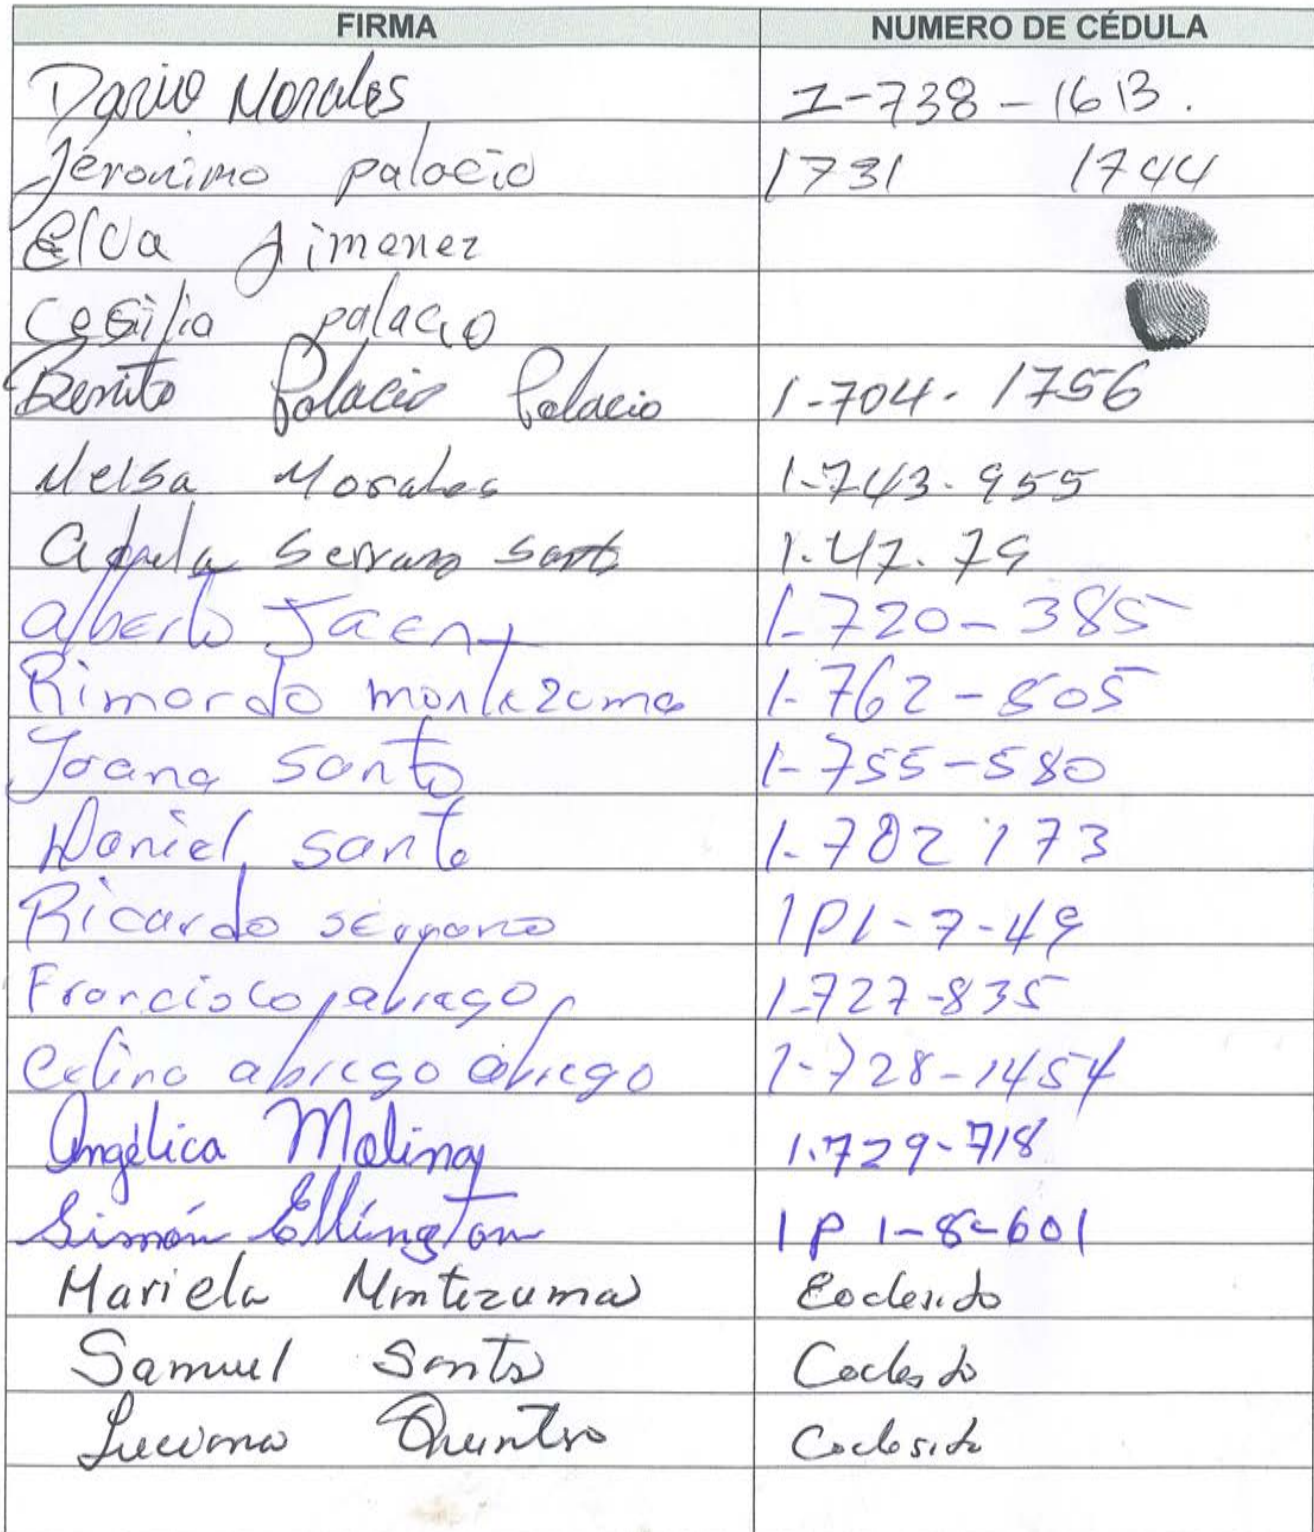 FIRMA NUMERO DE CÉDULA
Dario Morales 1-738-1613.
Jéronimo palacio 1731 1744
Elva Jimenez
Cesilia palacio
Benito Palacio Palacio 1-704-1756
Melsa Morales 1-743-955
Adela Serrano Santo 1.47.79
alberto Jaen 1-720-385
Rimordo montezuma 1-762-505
Joana Santo 1-755-580
Daniel Santo 1-702 173
Ricardo serrano 1P1-7-49
Francisco abrego 1-727-835
Celino abrego abrego 1-728-1454
Angélica Molina 1.729-718
Simón Ellington 1P 1-8-601
Mariela Montezuma Coclesito
Samuel Santo Coclesito
Luciano Quintero Coclesito